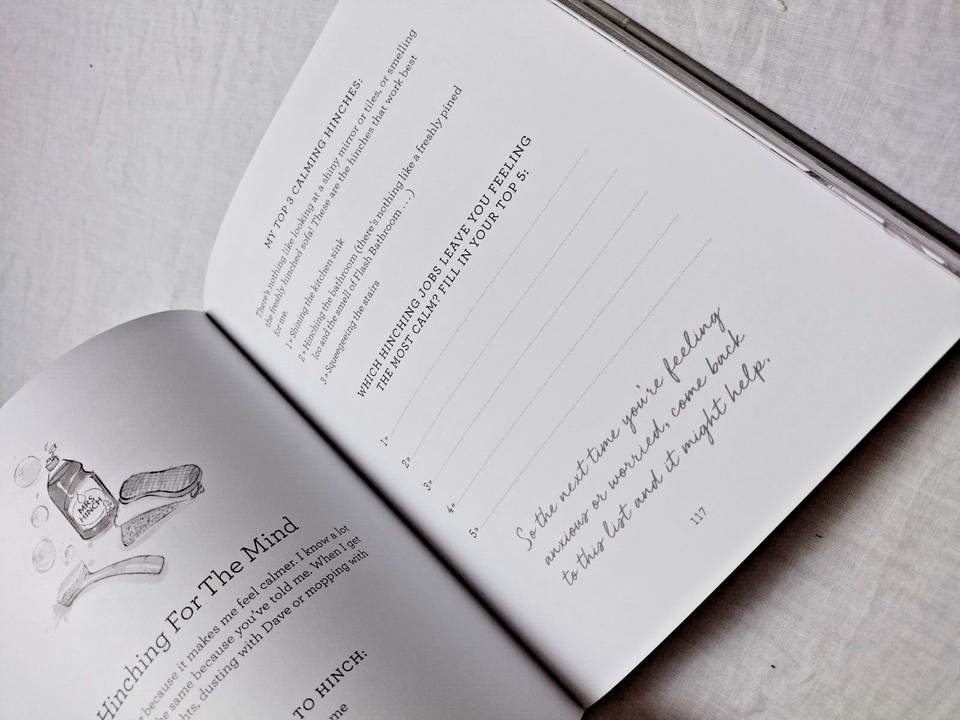 MRS
HINCH
Hinching For The Mind
because it makes me feel calmer. I know a lot
the same because you've told me. When I get
hts, dusting with Dave or mopping with
TO HINCH:
me
MY TOP 3 CALMING HINCHES:
There's nothing like looking at a shiny mirror or tiles, or smelling
the freshly hinched sofa! These are the hinches that work best
for me.
1» Shining the kitchen sink
2» Hinching the bathroom (there's nothing like a freshly pined
loo and the smell of Flash Bathroom . . .)
3» Squeegeeing the stairs
WHICH HINCHING JOBS LEAVE YOU FEELING
THE MOST CALM? FILL IN YOUR TOP 5:
1»
2»
3»
4»
5»
So the next time you're feeling
anxious or worried, come back
to this list and it might help.
117